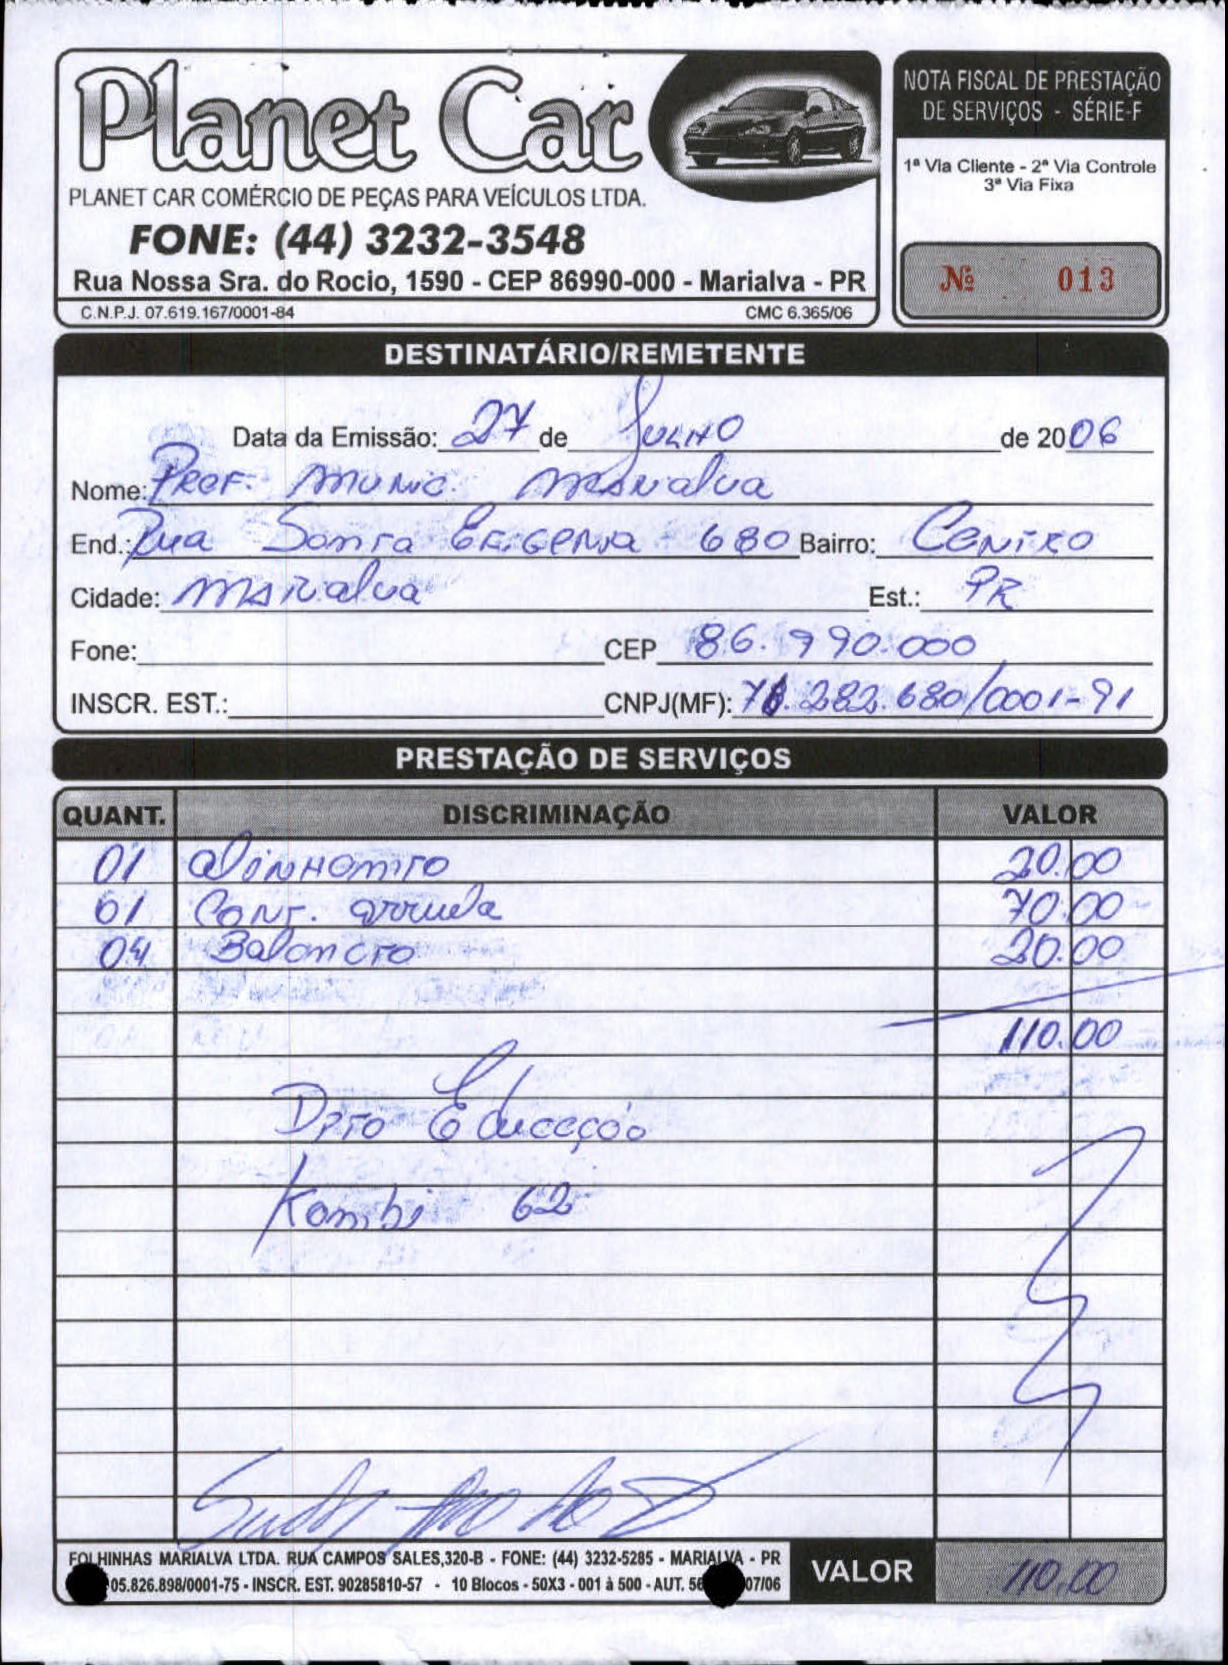 Planet Car
PLANET CAR COMÉRCIO DE PEÇAS PARA VEÍCULOS LTDA.
FONE: (44) 3232-3548
Rua Nossa Sra. do Rocio, 1590 - CEP 86990-000 - Marialva - PR
C.N.P.J. 07.619.167/0001-84 CMC 6.365/06
NOTA FISCAL DE PRESTAÇÃO
DE SERVIÇOS - SÉRIE-F
1ª Via Cliente - 2ª Via Controle
3ª Via Fixa
Nº 013
DESTINATÁRIO/REMETENTE
Data da Emissão: 27 de Julho de 2006
Nome: Pref. Munic. Marialva
End.: Rua Santa Efigenia 680 Bairro: Centro
Cidade: Marialva Est.: PR
Fone: CEP 86.990.000
INSCR. EST.: CNPJ(MF): 76.282.680/0001-91
PRESTAÇÃO DE SERVIÇOS
QUANT. DISCRIMINAÇÃO VALOR
01 Alinhamto 20.00
01 Conf. arruela 70.00
04 Balancto 20.00
110.00
Dpto Educação
Kombi 62
FOLHINHAS MARIALVA LTDA. RUA CAMPOS SALES,320-B - FONE: (44) 3232-5285 - MARIALVA - PR
05.826.898/0001-75 - INSCR. EST. 90285810-57 - 10 Blocos - 50X3 - 001 à 500 - AUT. 07/06
VALOR 110,00